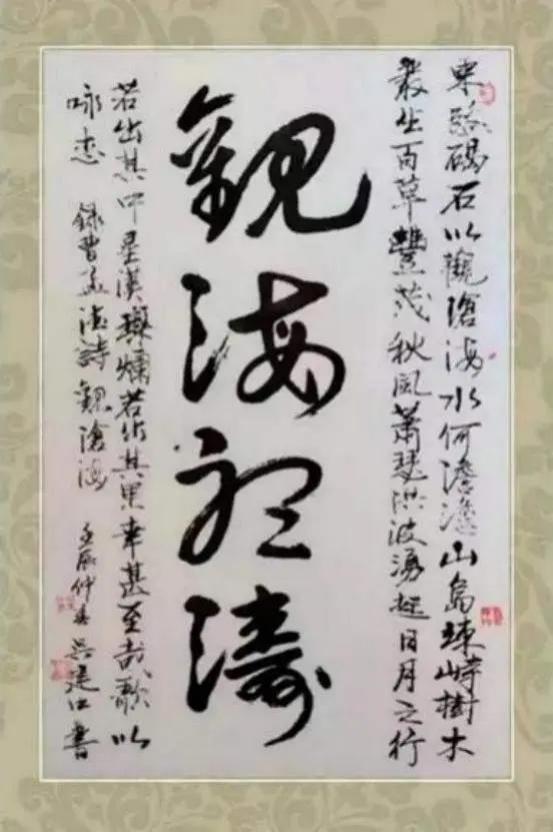 東臨碣石以觀滄海水何澹澹山島竦峙樹木
叢生百草豐茂秋風蕭瑟洪波湧起日月之行
觀海聽濤
若出其中星漢燦爛若出其里幸甚至哉歌以
詠志 錄曹孟德詩觀滄海 壬辰仲春 吳建江書